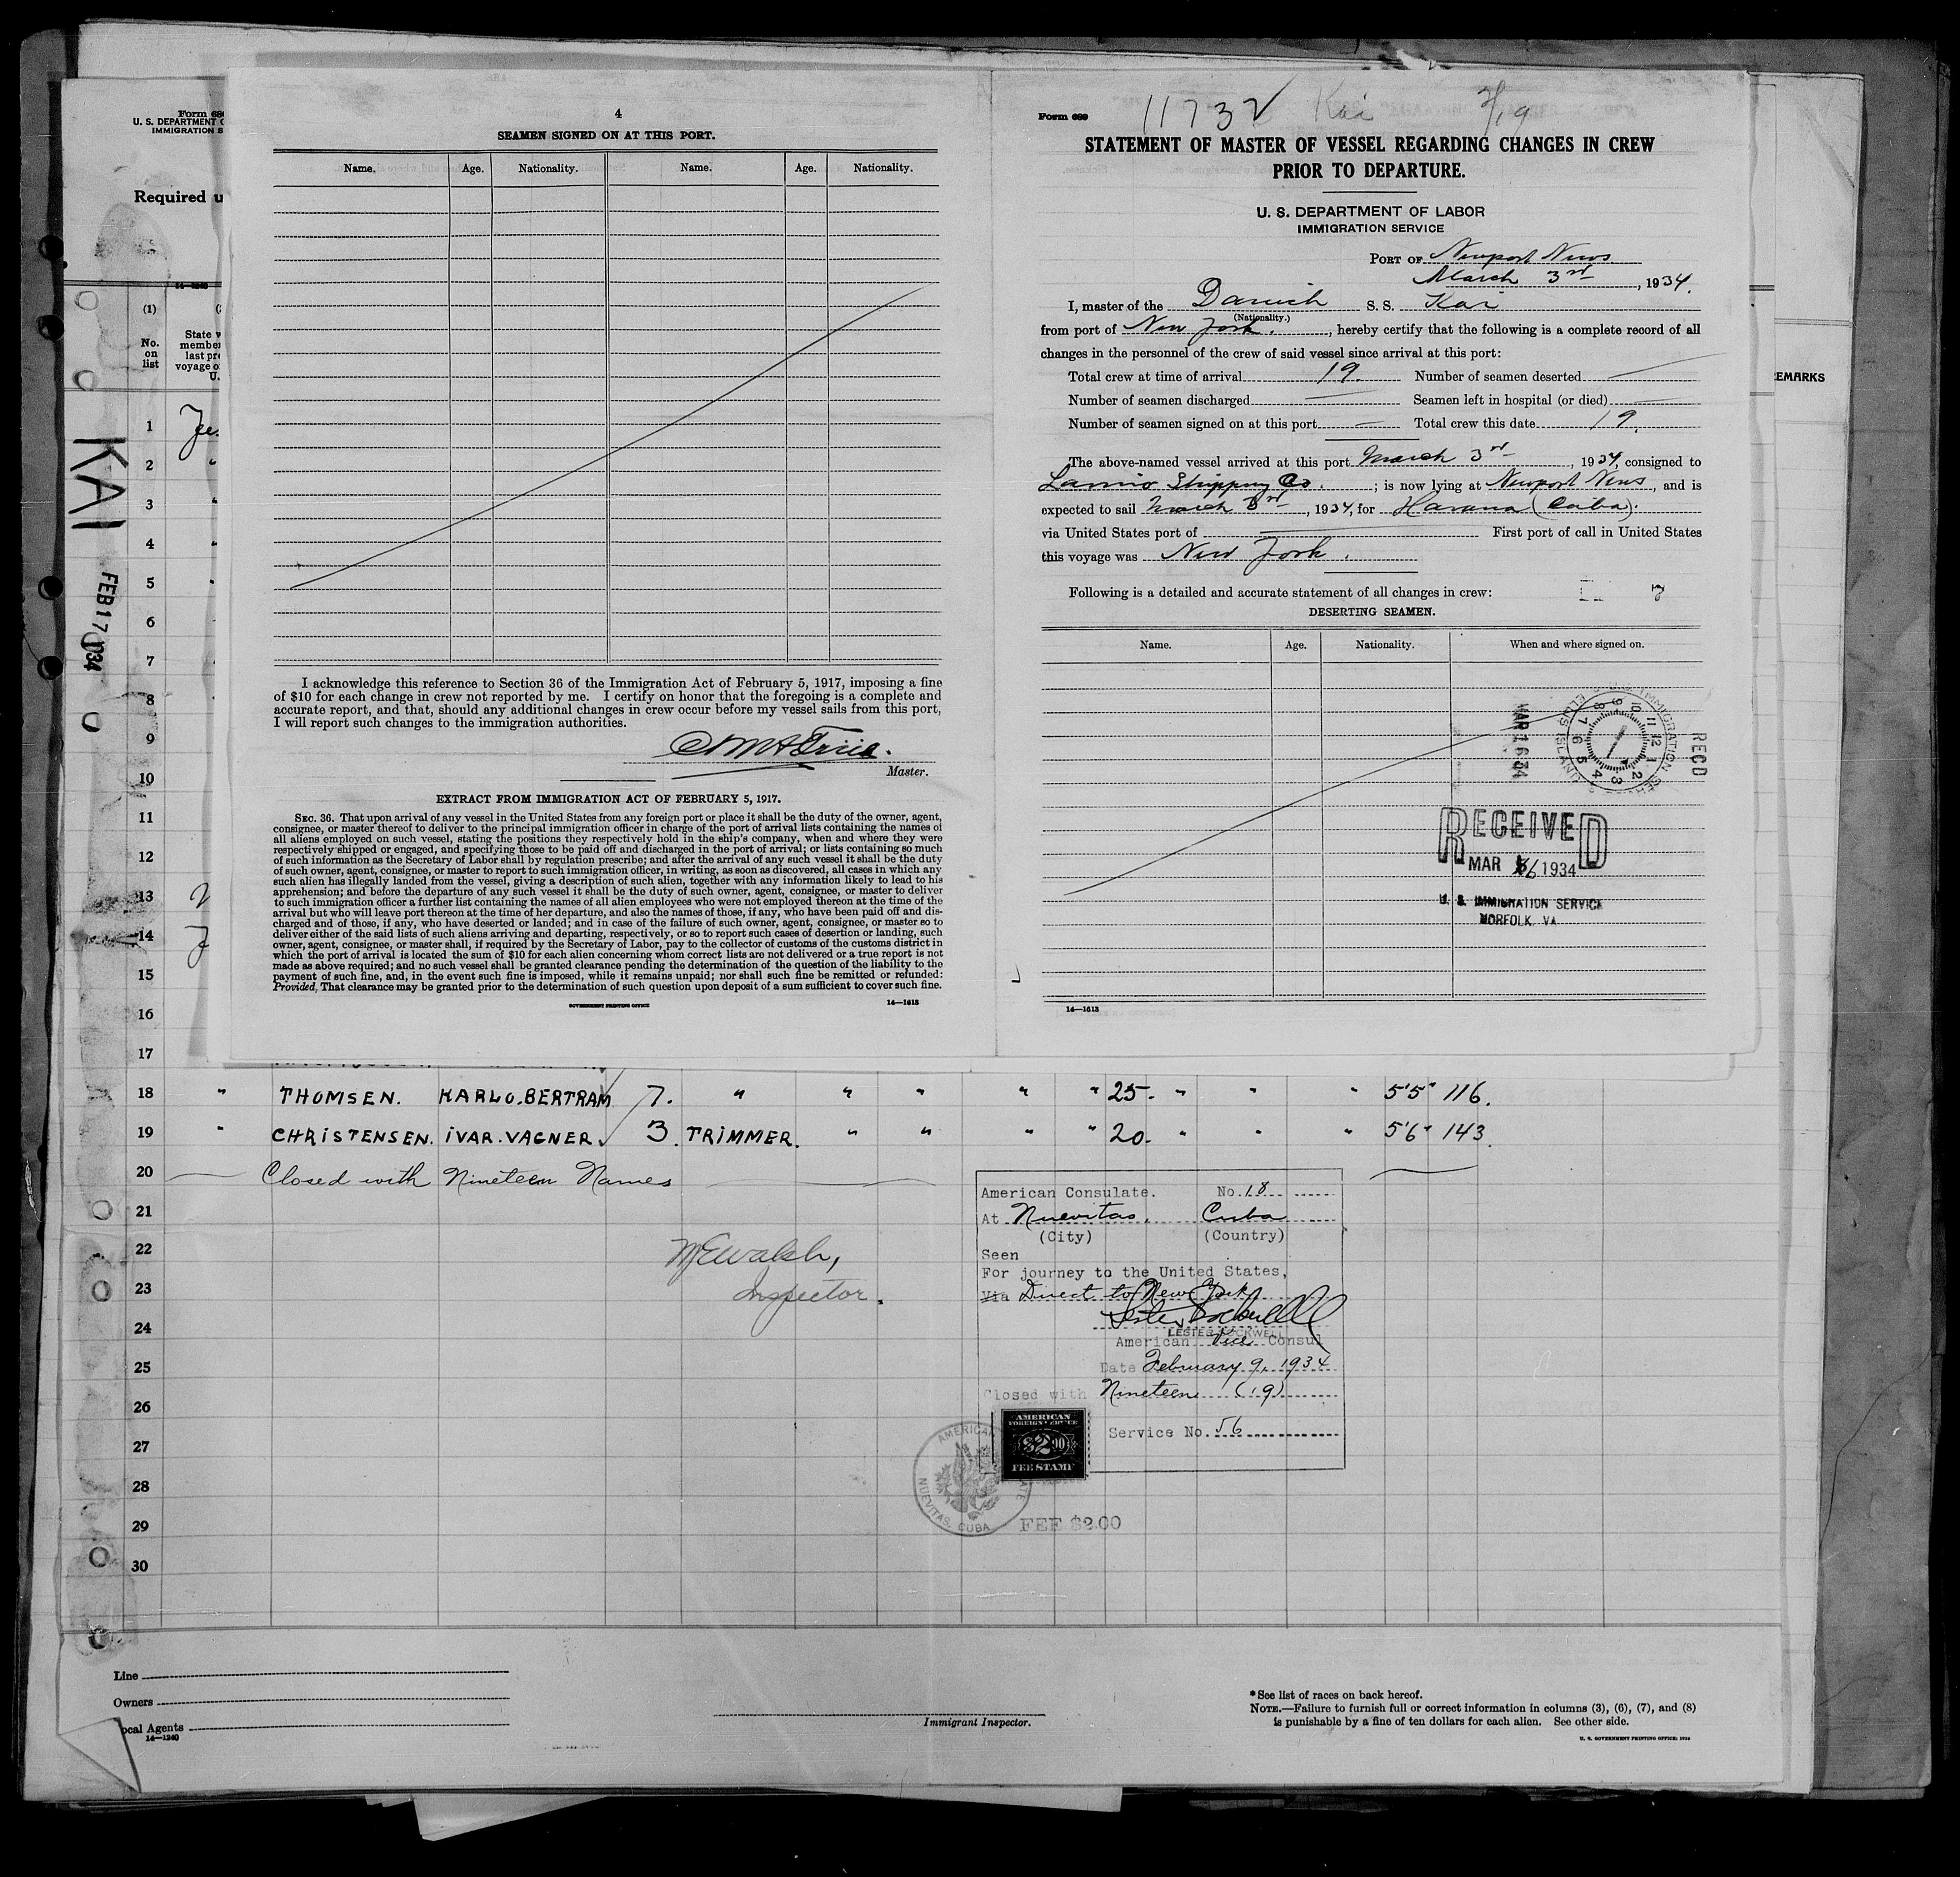 Form 680
U. S. DEPARTMENT
IMMIGRATION S
Required u
(1)
No.
on
list
State w
member
last pre
voyage o
U.
KAI
FEB 17 1934
1
2
3
4
5
6
7
8
9
10
11
12
13
14
15
16
17
4
SEAMEN SIGNED ON AT THIS PORT.
Name. Age. Nationality. Name. Age. Nationality.
I acknowledge this reference to Section 36 of the Immigration Act of February 5, 1917, imposing a fine
of $10 for each change in crew not reported by me. I certify on honor that the foregoing is a complete and
accurate report, and that, should any additional changes in crew occur before my vessel sails from this port,
I will report such changes to the immigration authorities.
Master.
EXTRACT FROM IMMIGRATION ACT OF FEBRUARY 5, 1917.
SEC. 36. That upon arrival of any vessel in the United States from any foreign port or place it shall be the duty of the owner, agent,
consignee, or master thereof to deliver to the principal immigration officer in charge of the port of arrival lists containing the names of
all aliens employed on such vessel, stating the positions they respectively hold in the ship's company, when and where they were
respectively shipped or engaged, and specifying those to be paid off and discharged in the port of arrival; or lists containing so much
of such information as the Secretary of Labor shall by regulation prescribe; and after the arrival of any such vessel it shall be the duty
of such owner, agent, consignee, or master to report to such immigration officer, in writing, as soon as discovered, all cases in which any
such alien has illegally landed from the vessel, giving a description of such alien, together with any information likely to lead to his
apprehension; and before the departure of any such vessel it shall be the duty of such owner, agent, consignee, or master to deliver
to such immigration officer a further list containing the names of all alien employees who were not employed thereon at the time of the
arrival but who will leave port thereon at the time of her departure, and also the names of those, if any, who have been paid off and dis-
charged and of those, if any, who have deserted or landed; and in case of the failure of such owner, agent, consignee, or master so to
deliver either of the said lists of such aliens arriving and departing, respectively, or so to report such cases of desertion or landing, such
owner, agent, consignee, or master shall, if required by the Secretary of Labor, pay to the collector of customs of the customs district in
which the port of arrival is located the sum of $10 for each alien concerning whom correct lists are not delivered or a true report is not
made as above required; and no such vessel shall be granted clearance pending the determination of the question of the liability to the
payment of such fine, and, in the event such fine is imposed, while it remains unpaid; nor shall such fine be remitted or refunded:
Provided, That clearance may be granted prior to the determination of such question upon deposit of a sum sufficient to cover such fine.
GOVERNMENT PRINTING OFFICE 14—1613
11732 Kai 2/19
Form 689
STATEMENT OF MASTER OF VESSEL REGARDING CHANGES IN CREW
PRIOR TO DEPARTURE.
U. S. DEPARTMENT OF LABOR
IMMIGRATION SERVICE
PORT OF Newport News
March 3rd, 1934.
I, master of the Danish S. S. Kai
(Nationality.)
from port of New York., hereby certify that the following is a complete record of all
changes in the personnel of the crew of said vessel since arrival at this port:
Total crew at time of arrival 19. Number of seamen deserted —
Number of seamen discharged — Seamen left in hospital (or died) —
Number of seamen signed on at this port — Total crew this date 19.
The above-named vessel arrived at this port March 3rd, 1934, consigned to
Shipping Co.; is now lying at Newport News, and is
expected to sail March 3rd, 1934, for Havana (Cuba).
via United States port of — First port of call in United States
this voyage was New York.
Following is a detailed and accurate statement of all changes in crew:
DESERTING SEAMEN.
Name. Age. Nationality. When and where signed on.
MAR 16 34
IMMIGRATION SERVICE ELLIS ISLAND
RECD
RECEIVED
MAR 6 1934
U. S. IMMIGRATION SERVICE
NORFOLK, VA.
14—1613
EMARKS
18 " THOMSEN. KARLO.BERTRAM 7. " " " " " 25- " " " 5'5" 116.
19 " CHRISTENSEN. IVAR.VAGNER 3. TRIMMER. " " " " 20- " " " 5'6" 143.
20 — Closed with Nineteen Names —
21
22
23
24
25
26
27
28
29
30
McWalsh,
Inspector.
American Consulate. No. 18
At Nuevitas, Cuba
(City) (Country)
Seen
For journey to the United States,
Via Direct to New York
Lester Rockwell
LESTER ROCKWELL
American Vice Consul
Date February 9, 1934
Closed with Nineteen (19)
Service No. 56
AMERICAN
FOREIGN SERVICE
$2.00
FEE STAMP
AMERICAN CONSULATE
NUEVITAS, CUBA
FEE $2.00
Line
Owners
ocal Agents
14—1240
Immigrant Inspector.
*See list of races on back hereof.
NOTE.—Failure to furnish full or correct information in columns (3), (6), (7), and (8)
is punishable by a fine of ten dollars for each alien. See other side.
U. S. GOVERNMENT PRINTING OFFICE: 1930